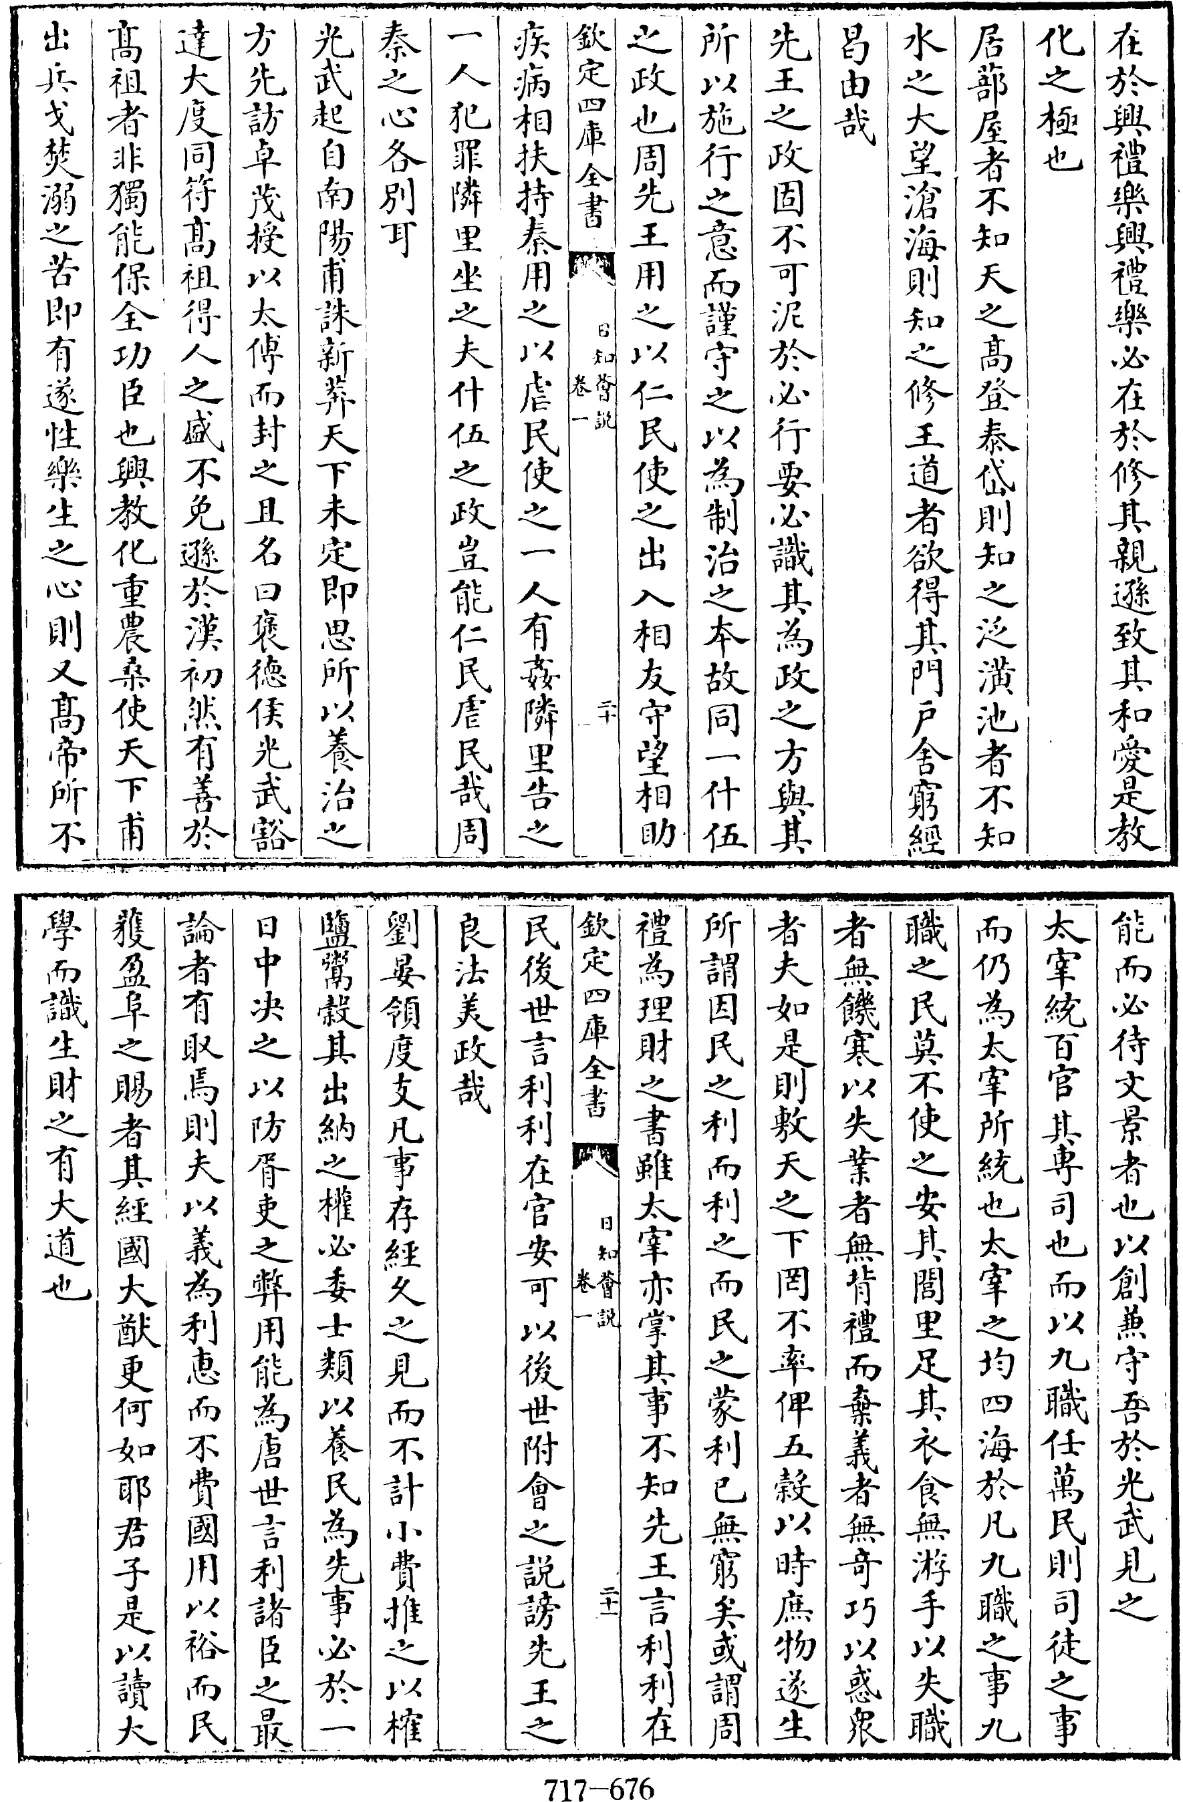 在於興禮樂興禮樂必在於修其親遜致其和愛是教
化之極也
居蔀屋者不知天之髙登泰岱則知之泛潢池者不知
水之大望滄海則知之修王道者欲得其門戶舍窮經
曷由哉
先王之政固不可泥於必行要必識其為政之方與其
所以施行之意而謹守之以為制治之本故同一什伍
之政也周先王用之以仁民使之出入相友守望相助
欽定四庫全書
日知薈說
卷一
二十
疾病相扶持秦用之以虐民使之一人有姦隣里告之
一人犯罪隣里坐之夫什伍之政豈能仁民虐民哉周
秦之心各別耳
光武起自南陽甫誅新莽天下未定即思所以養治之
方先訪卓茂授以太傅而封之且名曰褒德侯光武豁
達大度同符髙祖得人之盛不免遜於漢初然有善於
髙祖者非獨能保全功臣也興教化重農桑使天下甫
出兵戈焚溺之苦即有遂性樂生之心則又髙帝所不
能而必待文景者也以創兼守吾於光武見之
太宰統百官其專司也而以九職任萬民則司徒之事
而仍為太宰所統也太宰之均四海於凡九職之事九
職之民莫不使之安其閭里足其衣食無游手以失職
者無饑寒以失業者無背禮而棄義者無奇巧以惑衆
者夫如是則敷天之下罔不率俾五穀以時庶物遂生
所謂因民之利而利之而民之蒙利已無窮矣或謂周
禮為理財之書雖太宰亦掌其事不知先王言利利在
欽定四庫全書
日知薈說
卷一
二十一
民後世言利利在官安可以後世附會之說謗先王之
良法美政哉
劉晏領度支凡事存經久之見而不計小費推之以榷
鹽鬻穀其出納之權必委士類以養民為先事必於一
日中决之以防胥吏之弊用能為唐世言利諸臣之最
論者有取焉則夫以義為利惠而不費國用以裕而民
獲盈阜之賜者其經國大猷更何如耶君子是以讀大
學而識生財之有大道也
717-676